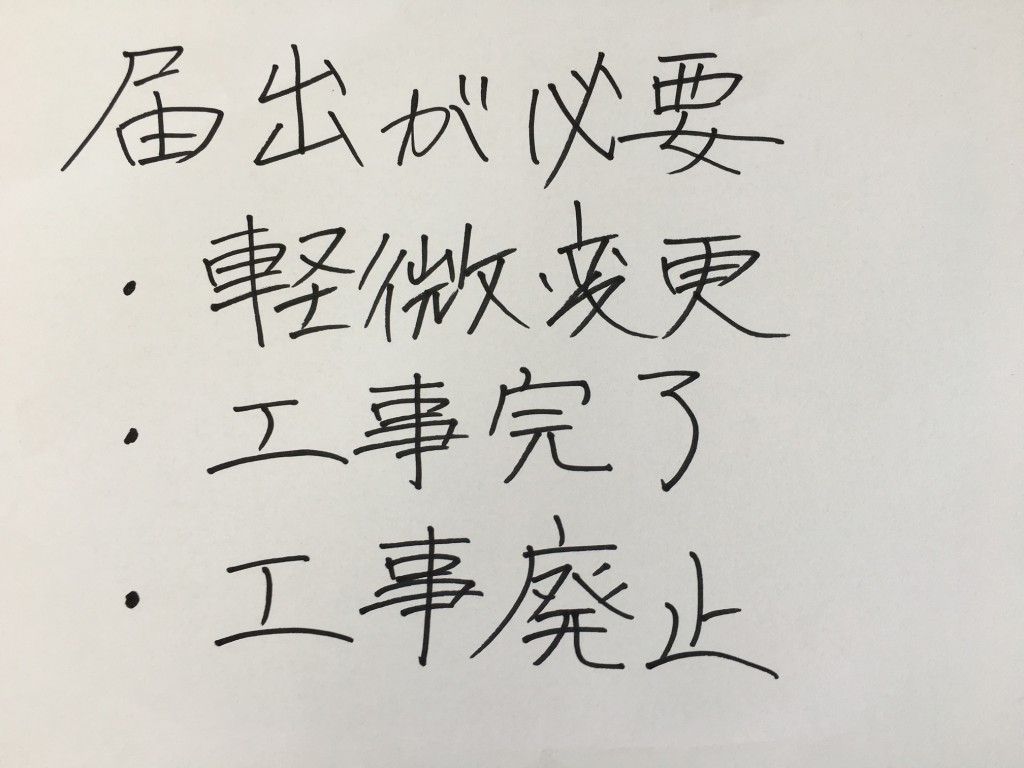 届出が必要
・軽微変更
・工事完了
・工事廃止